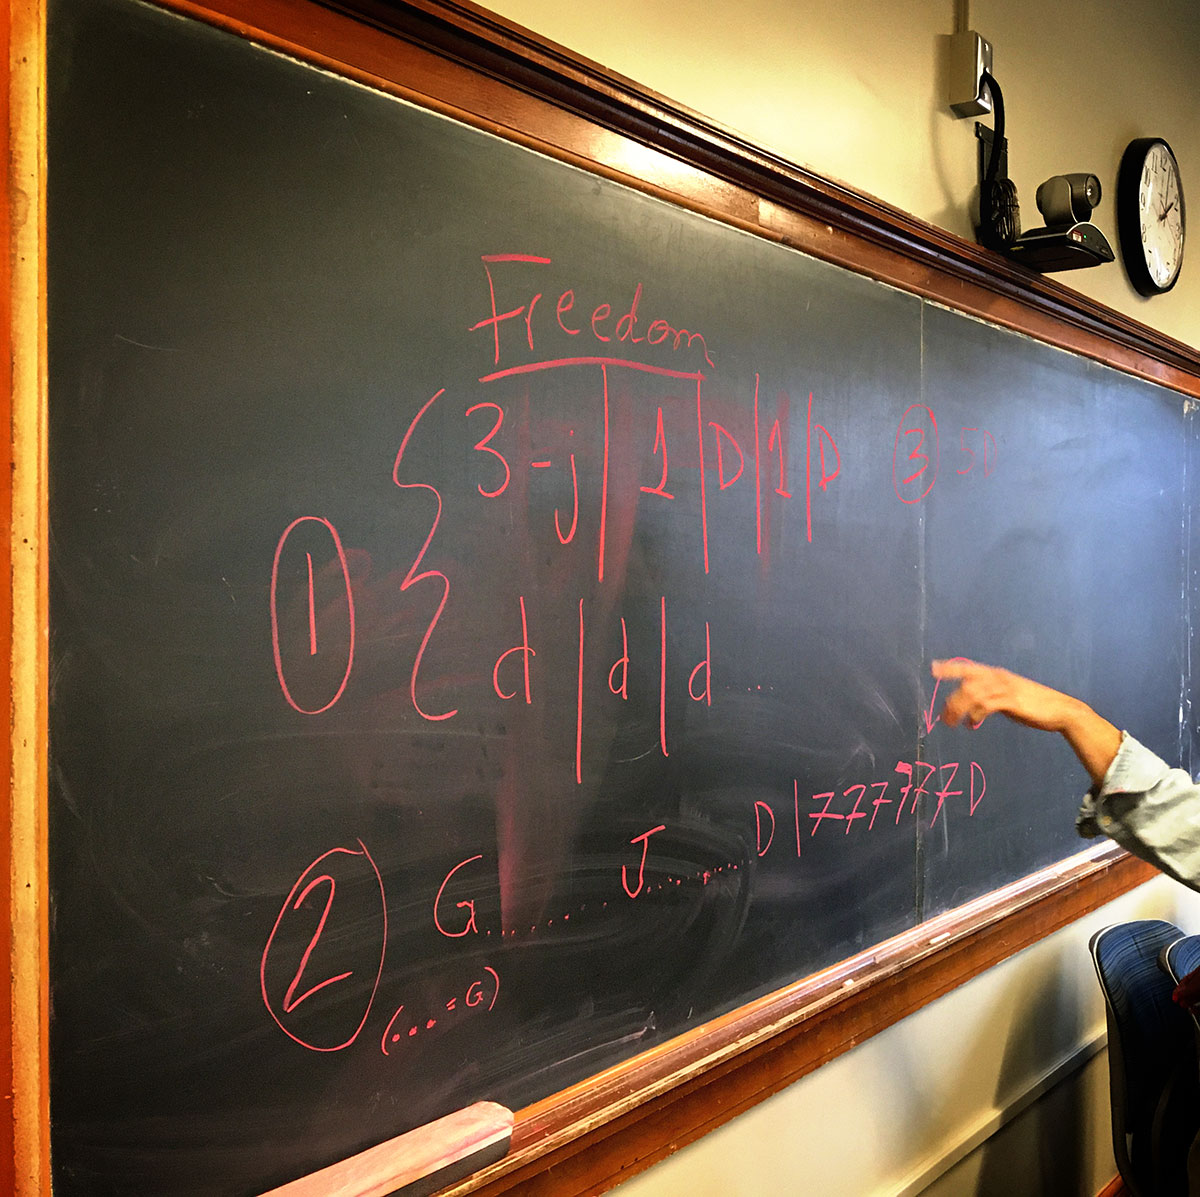 Freedom
3-j | 1 | D | 1 | D ③ 5D
①
d | d | d ...
② G........J......... D | 777777D
(...=G)